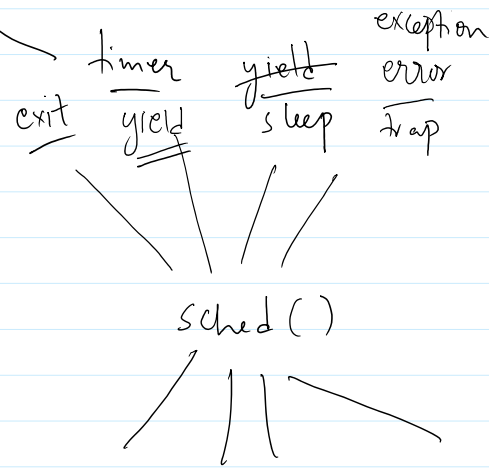 exception
timer yield error
exit yield sleep trap
sched ( )